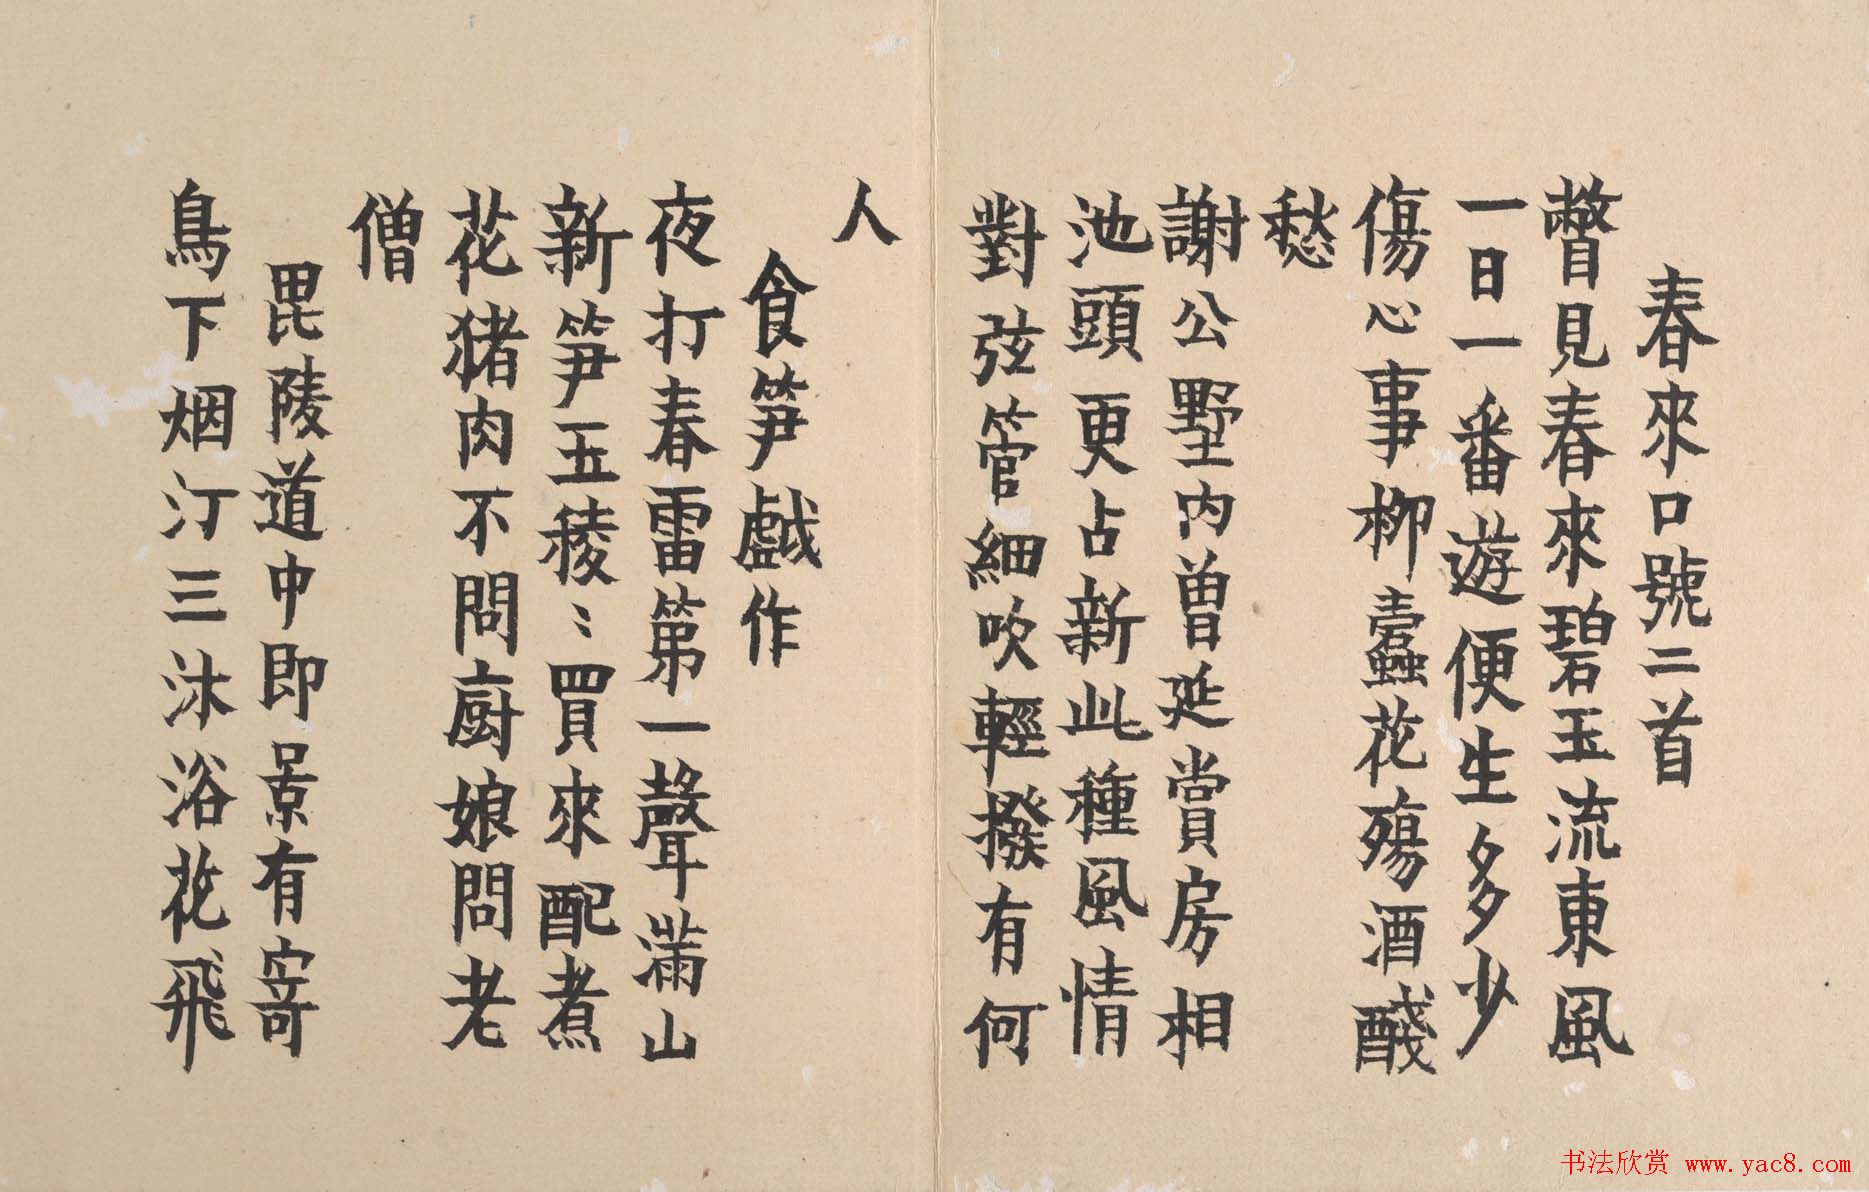 春來口號二首
瞥見春來碧玉流東風
一日一番遊便生多少
傷心事柳蠹花殤酒醆
愁
謝公墅內曾延賞房相
池頭更占新此種風情
對弦管細吹輕撥有何
人
食笋戲作
夜打春雷第一聲滿山
新笋玉稜〻買來配煮
花猪肉不問厨娘問老
僧
毘陵道中即景有寄
鳥下烟汀三沐浴花飛
书法欣赏 www.yac8.com